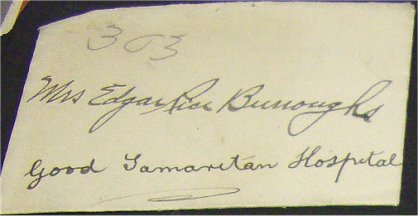 303
Mrs Edgar Rice Burroughs
Good Samaritan Hospital